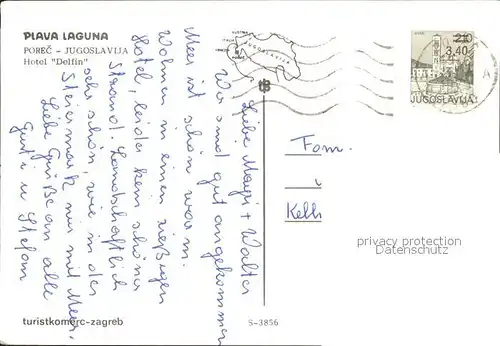 PLAVA LAGUNA
POREČ - JUGOSLAVIJA
Hotel "Delfin"
JUGOSLAVIJA
2.10
3.40
JUGOSLAVIJA
A
Liebe + Walter
Wir sind gut angekommen
Meer ist schön warm.
Wohnen in einen riesigen
Hotel, leider kein schöner
Strand. Landschaftlich
sehr schön, wie in der
Steiermark nur mit Meer.
Liebe Grüße an alle
Gusti u Stefan
Fam.
Kelli
privacy protection
Datenschutz
turistkomerc-zagreb
S-3856